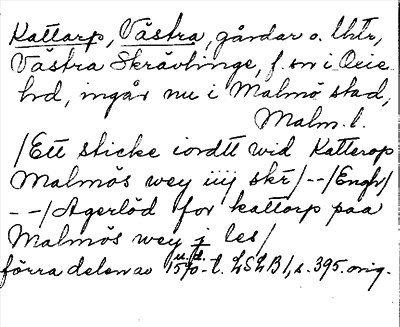 Kattarp, Västra, gårdar o. lhtr,
Västra Skrävlinge, f. sn i Oxie
hd, ingår nu i Malmö stad,
Malm. l.
/Ett sticke iordtt wid Katterop
Malmös wey iiij skr/--/Engh/
--/Agerlöd for kattorp paa
Malmös wey j les/
förra delen av 1570-t. LSLB 1, s. 395. orig.